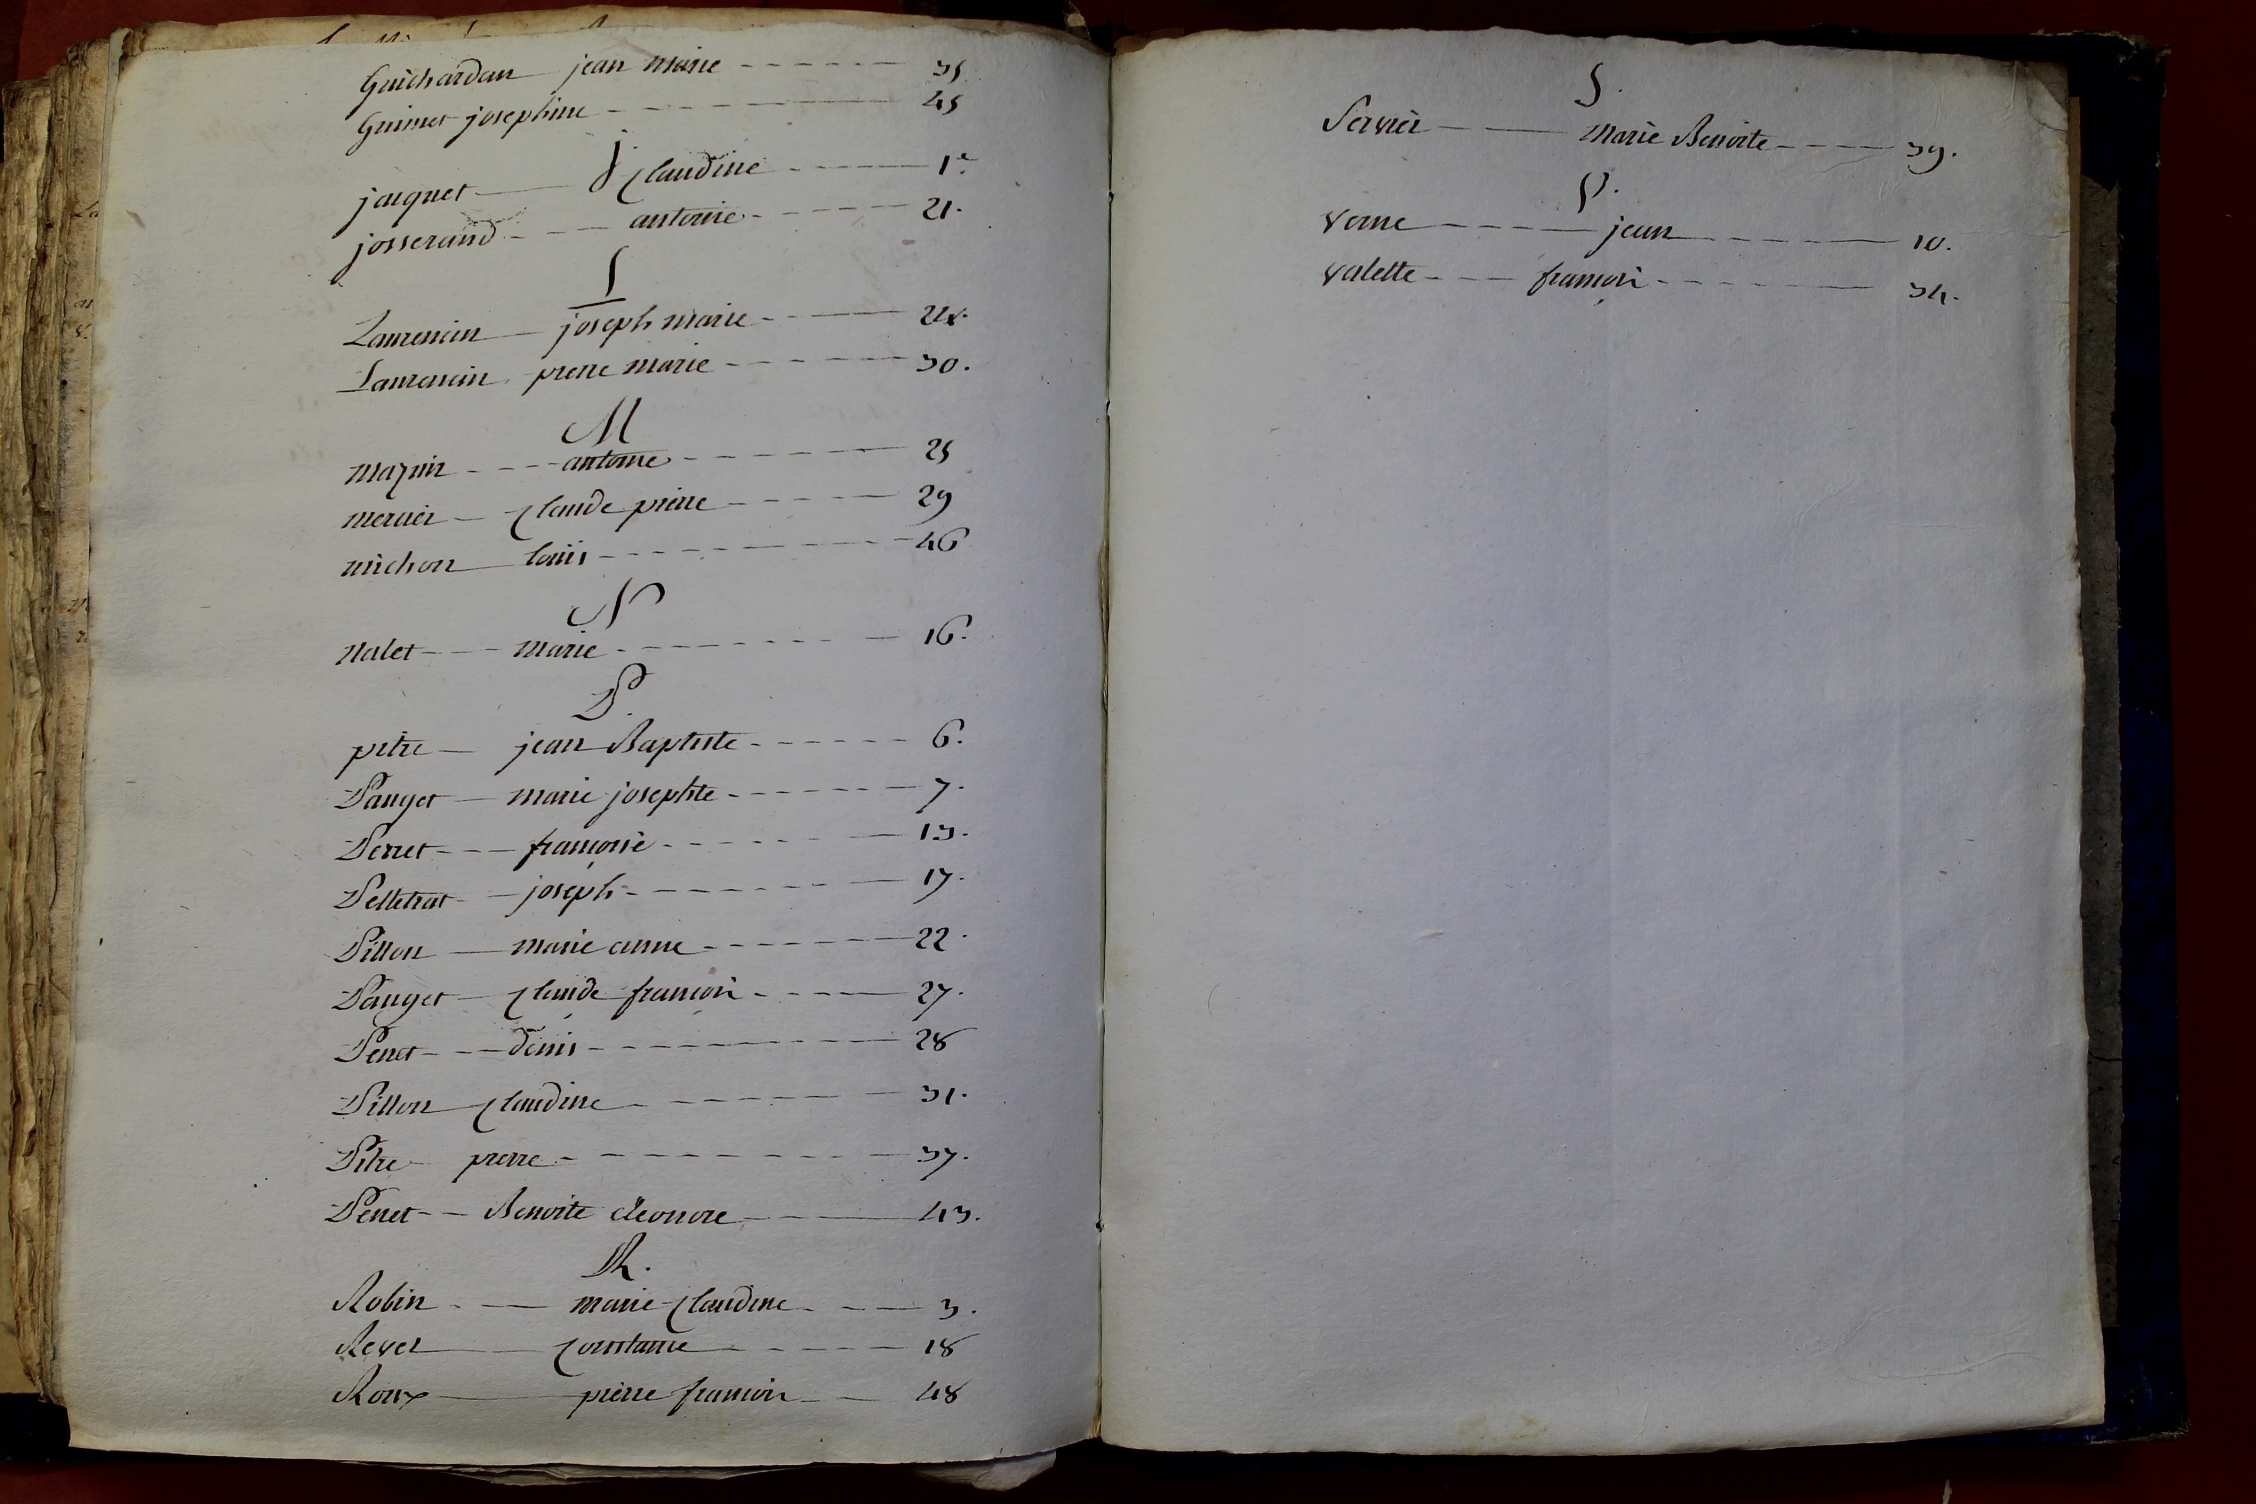 Guichardan jean marie ------ 35
Guimet josephine ------ 45
J
jacquet claudine ------ 1er
josserand --- antoine ------ 21.
L
Laurencin joseph marie ------ 24.
Laurencin pierre marie ------ 30.
M
mazuir --- antoine ------ 25
mercier claude pierre ------ 29
michon louis ------ 46
N
Nalet --- marie ------ 16.
P.
pitre jean Baptiste ------ 6.
Pauget marie josephte ------ 7.
Perret --- françoise ------ 13.
Pelletrat joseph ------ 17.
Pillon marie anne ------ 22.
Pauget claude françois ------ 27.
Penet --- denis ------ 28
Pillon claudine ------ 31.
Pitre pierre ------ 37.
Penet -- Benoite eleonore ------ 43.
R.
Robin marie claudine ------ 3.
Revel constance ------ 18
Roux pierre françois 48
S.
Servier marie Benoite ---- 39.
V.
Verne ---- jean ------ 10.
Valette --- françois ------ 34.